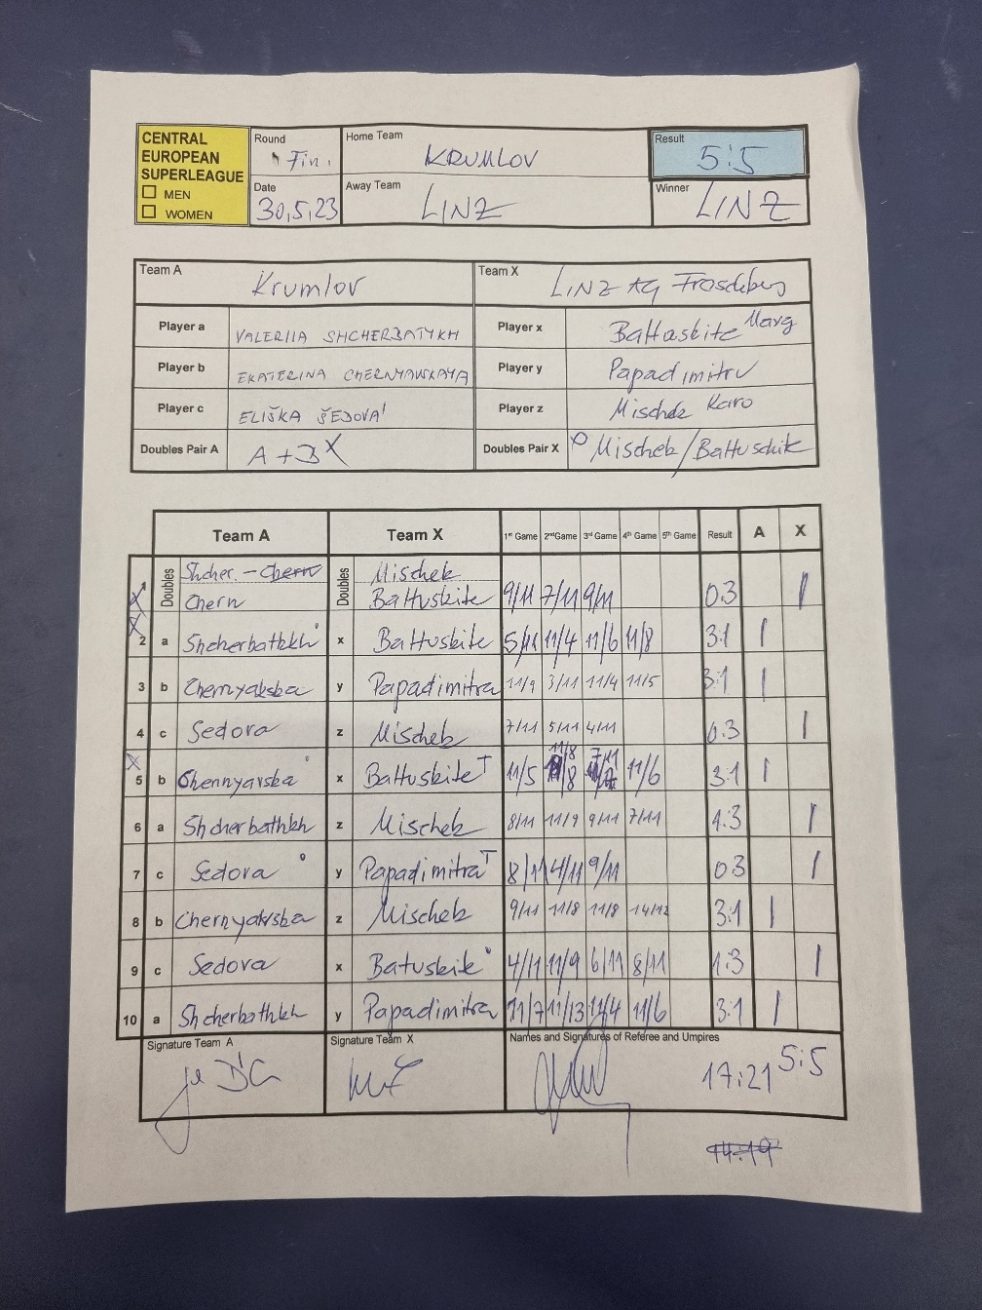 CENTRAL EUROPEAN SUPERLEAGUE
☐ MEN
☐ WOMEN
Round Fin.
Date 30,5,23
Home Team KRUMLOV
Away Team LINZ
Result 5:5
Winner LINZ
Team A Krumlov Team X LINZ AG Froschberg
Player a VALERIIA SHCHERBATYKH Player x Battuskite Marg
Player b EKATERINA CHERNYAVSKAYA Player y Papadimitru
Player c ELIŠKA ŠEDOVA' Player z Mischek Karo
Doubles Pair A A+B X Doubles Pair X Mischek/Battuschik
Team A Team X 1st Game 2nd Game 3rd Game 4th Game 5th Game Result A X
1 Doubles Shcher. - Chern Chern Doubles Mischek Battuskite 9/11 7/11 9/11 0:3 |
2 a Shcherbathkh x Battuskite 5/11 11/4 11/6 11/8 3:1 |
3 b Chernyakska y Papadimitra 11/9 3/11 11/4 11/5 3:1 |
4 c Sedova z Mischek 7/11 5/11 4/11 0:3 |
5 b Chennyavska x Battuskite T 11/5 11/8 7/11 11/6 3:1 |
6 a Shcherbathkh z Mischek 8/11 11/9 9/11 7/11 1:3 |
7 c Sedova y Papadimitra T 8/11 4/11 9/11 0:3 |
8 b Chernyakvska z Mischek 9/11 11/8 11/8 14/12 3:1 |
9 c Sedova x Batuskite 4/11 11/9 6/11 8/11 1:3 |
10 a Shcherbathkh y Papadimitra 11/7 11/13 11/4 11/6 3:1 |
Signature Team A Signature Team X Names and Signatures of Referee and Umpires
17:21 5:5
14:19